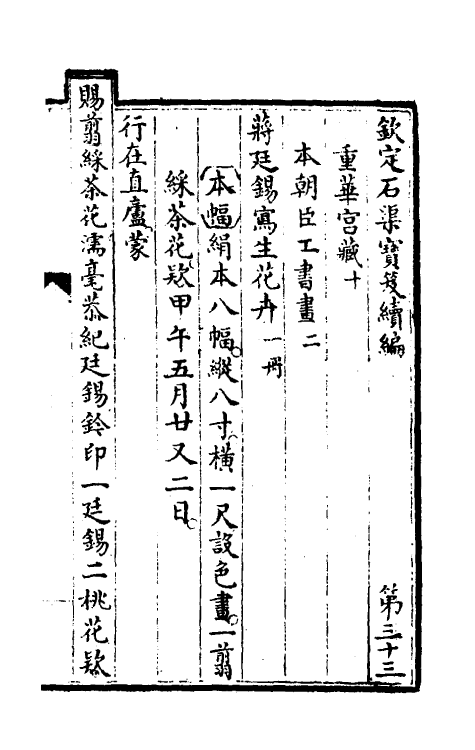 欽定石渠寶笈續編 第三十三
重華宮藏十
本朝臣工書畫二
蔣廷錫寫生花卉一冊
本幅絹本八幅縱八寸橫一尺設色畫一翦
綵茶花款甲午五月廿又二日
行在直廬蒙
賜翦綵茶花濡毫恭紀廷錫鈐印一廷錫二桃花款